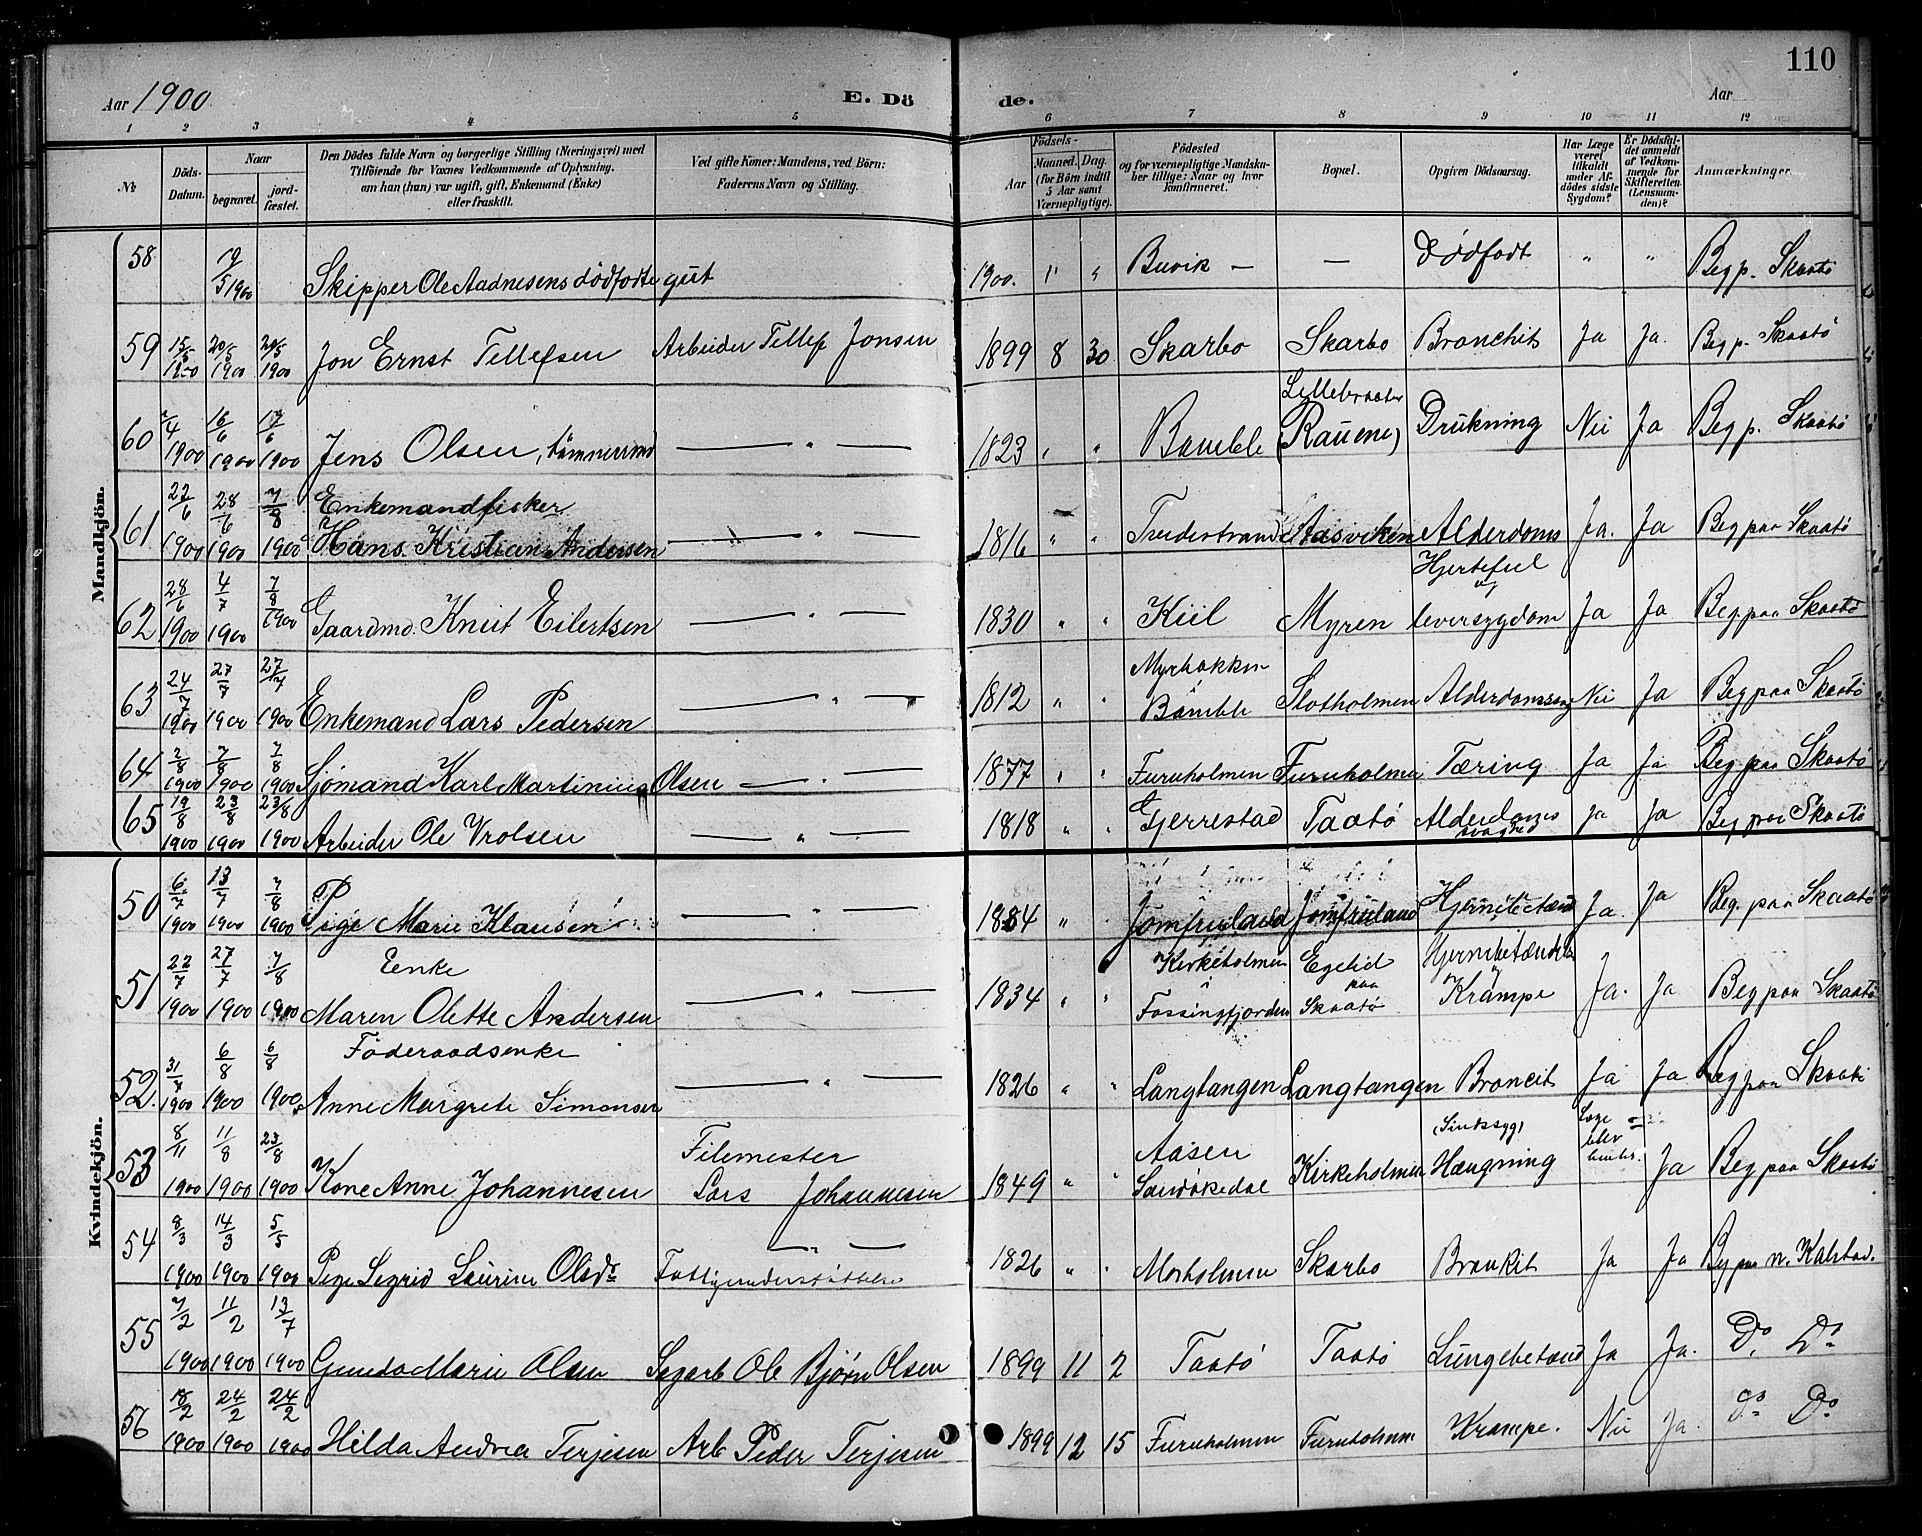 110
Aar 1900 E. Dö de. Aar
1 2 3 4 5 6 7 8 9 10 11 12
№ Döds-Datum. Naar begravet. jord-fæstet. Den Dödes fulde Navn og borgerlige Stilling (Næringsvei) med Tilföiende for Voxnes Vedkommende af Oplysning, om han (hun) var ugift, gift, Enkemand (Enke) eller fraskilt. Ved gifte Koner: Mandens, ved Börn: Faderens Navn og Stilling. Födsels- Aar Maaned. Dag. (for Börn indtil 5 Aar samt Værnepligtige). Födested og for værnepligtige Mandskaber tillige: Naar og hvor konfirmeret. Bopæl. Opgiven Dödsaarsag. Har Læge været tilkaldt under Afdödes sidste Sygdom? Er Dödsfaldet anmeldt af Vedkommende for Skifteretten (Lensmanden)? Anmærkninger.
Mandkjön.
58 9/5 1900 Skipper Ole Aadnesens dödfödte gut 1900. " " Buvik — — Dödfödt " " Beg p. Skaatö
59 15/5 1900 20/5 1900 20/5 1900 Jon Ernst Tellefsen Arbeider Tellef Jonsen 1899 8 30 Skarbo Skarbo Bronchit Ja Ja. Beg p. Skaatö
Lillebraaten
60 7/4 1900 16/6 1900 17/6 1900 Jens Olsen, tömmermd — " — 1823 " " Bamble (Rauene) Drukning Nei Ja Beg p. Skaatö
Enkemand fisker
61 22/6 1900 28/6 1900 7/8 1900 Hans Kristian Andersen — " — 1816 " " Aasviken Alderdoms Ja. Ja Beg paa Skaatö
Hjertefeil og
62 28/6 1900 4/7 1900 7/8 1900 Gaardmd. Knut Eilertsen — " — 1830 " " Kiil Myren leversygdom Ja Ja Beg paa Skaatö
Myrbakken i
63 24/7 1900 27/7 1900 27/7 1900 Enkemand Lars Pedersen — " — 1812 " " Bamble Slotholmen Nei Ja Beg paa Skaatö
64 2/8 1900 7/8 1900 7/8 1900 Sjömand Karl Martinius Olsen — " — 1877 " " Furuholmen Furuholmen Tæring Ja Ja Beg paa Skaatö
65 19/8 1900 23/8 1900 23/8 1900 Arbeider Ole Vrolsen — " — 1818 " " Gjerrestad Taatö Alderdoms svaghed Ja Ja Beg paa Skaatö
Kvindekjön.
50 6/7 1900 13/7 1900 7/8 1900 Pige Marie Klausen — " — 1884 " Jomfruland Jomfruland Hjernebetænd Ja. Ja Beg. paa Skaatö
Eenke Kirkeholmen i Egelid paa
51 22/7 1900 27/7 1900 7/8 1900 Maren Olette Andersen — " — 1834 " " Fossingfjorden Skaatö Krampe Ja. Ja Beg paa Skaatö
Föderaadsenke
52. 31/7 1900 6/8 1900 6/8 1900 Anne Margrete Simonsen — " — 1826 " " Langtangen Langtangen Broncit Ja Ja Beg paa Skaatö
Filemester Aasen (Sindssyg) Læge blev
53 8/11 1900 11/8 1900 23/8 1900 Kone Anne Johannesen Lars Johannesen 1849 " " Sandökedal Kirkeholmen Hængning Ja Beg paa Skaatö
54 8/3 1900 14/3 1900 5/5 1900 Pige Segrid Laurine Olsdr Fattigunderstöttelse — " — 1826 " " Morholmen Skarbo Bronkit Ja Ja Beg paa n. Kalstad.
55 7/2 1900 11/2 1900 13/7 1900 Gunda Marie Olsen Ole Björn Olsen 1899 11 2 Taatö Taatö Lungebetænd Ja Ja. Do. Do
56 18/2 1900 24/2 1900 24/2 1900 Hilda Andrea Terjesen Arb Peder Terjesen 1899 12 15 Furuholmen Furuholmen Krampe. Nei Ja. Do Do